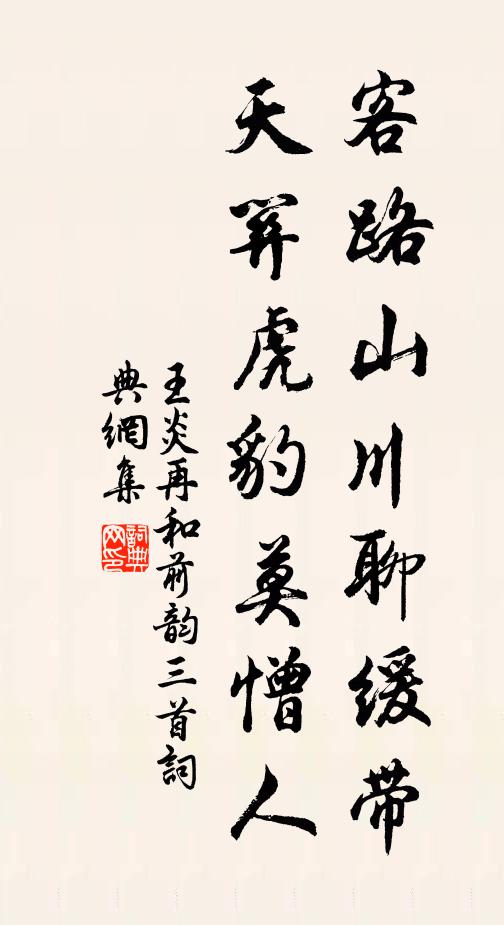 客路山川聊緩帶
天關虎豹莫憎人
王炎再和前韵三首詞
典網集
詞典
网印